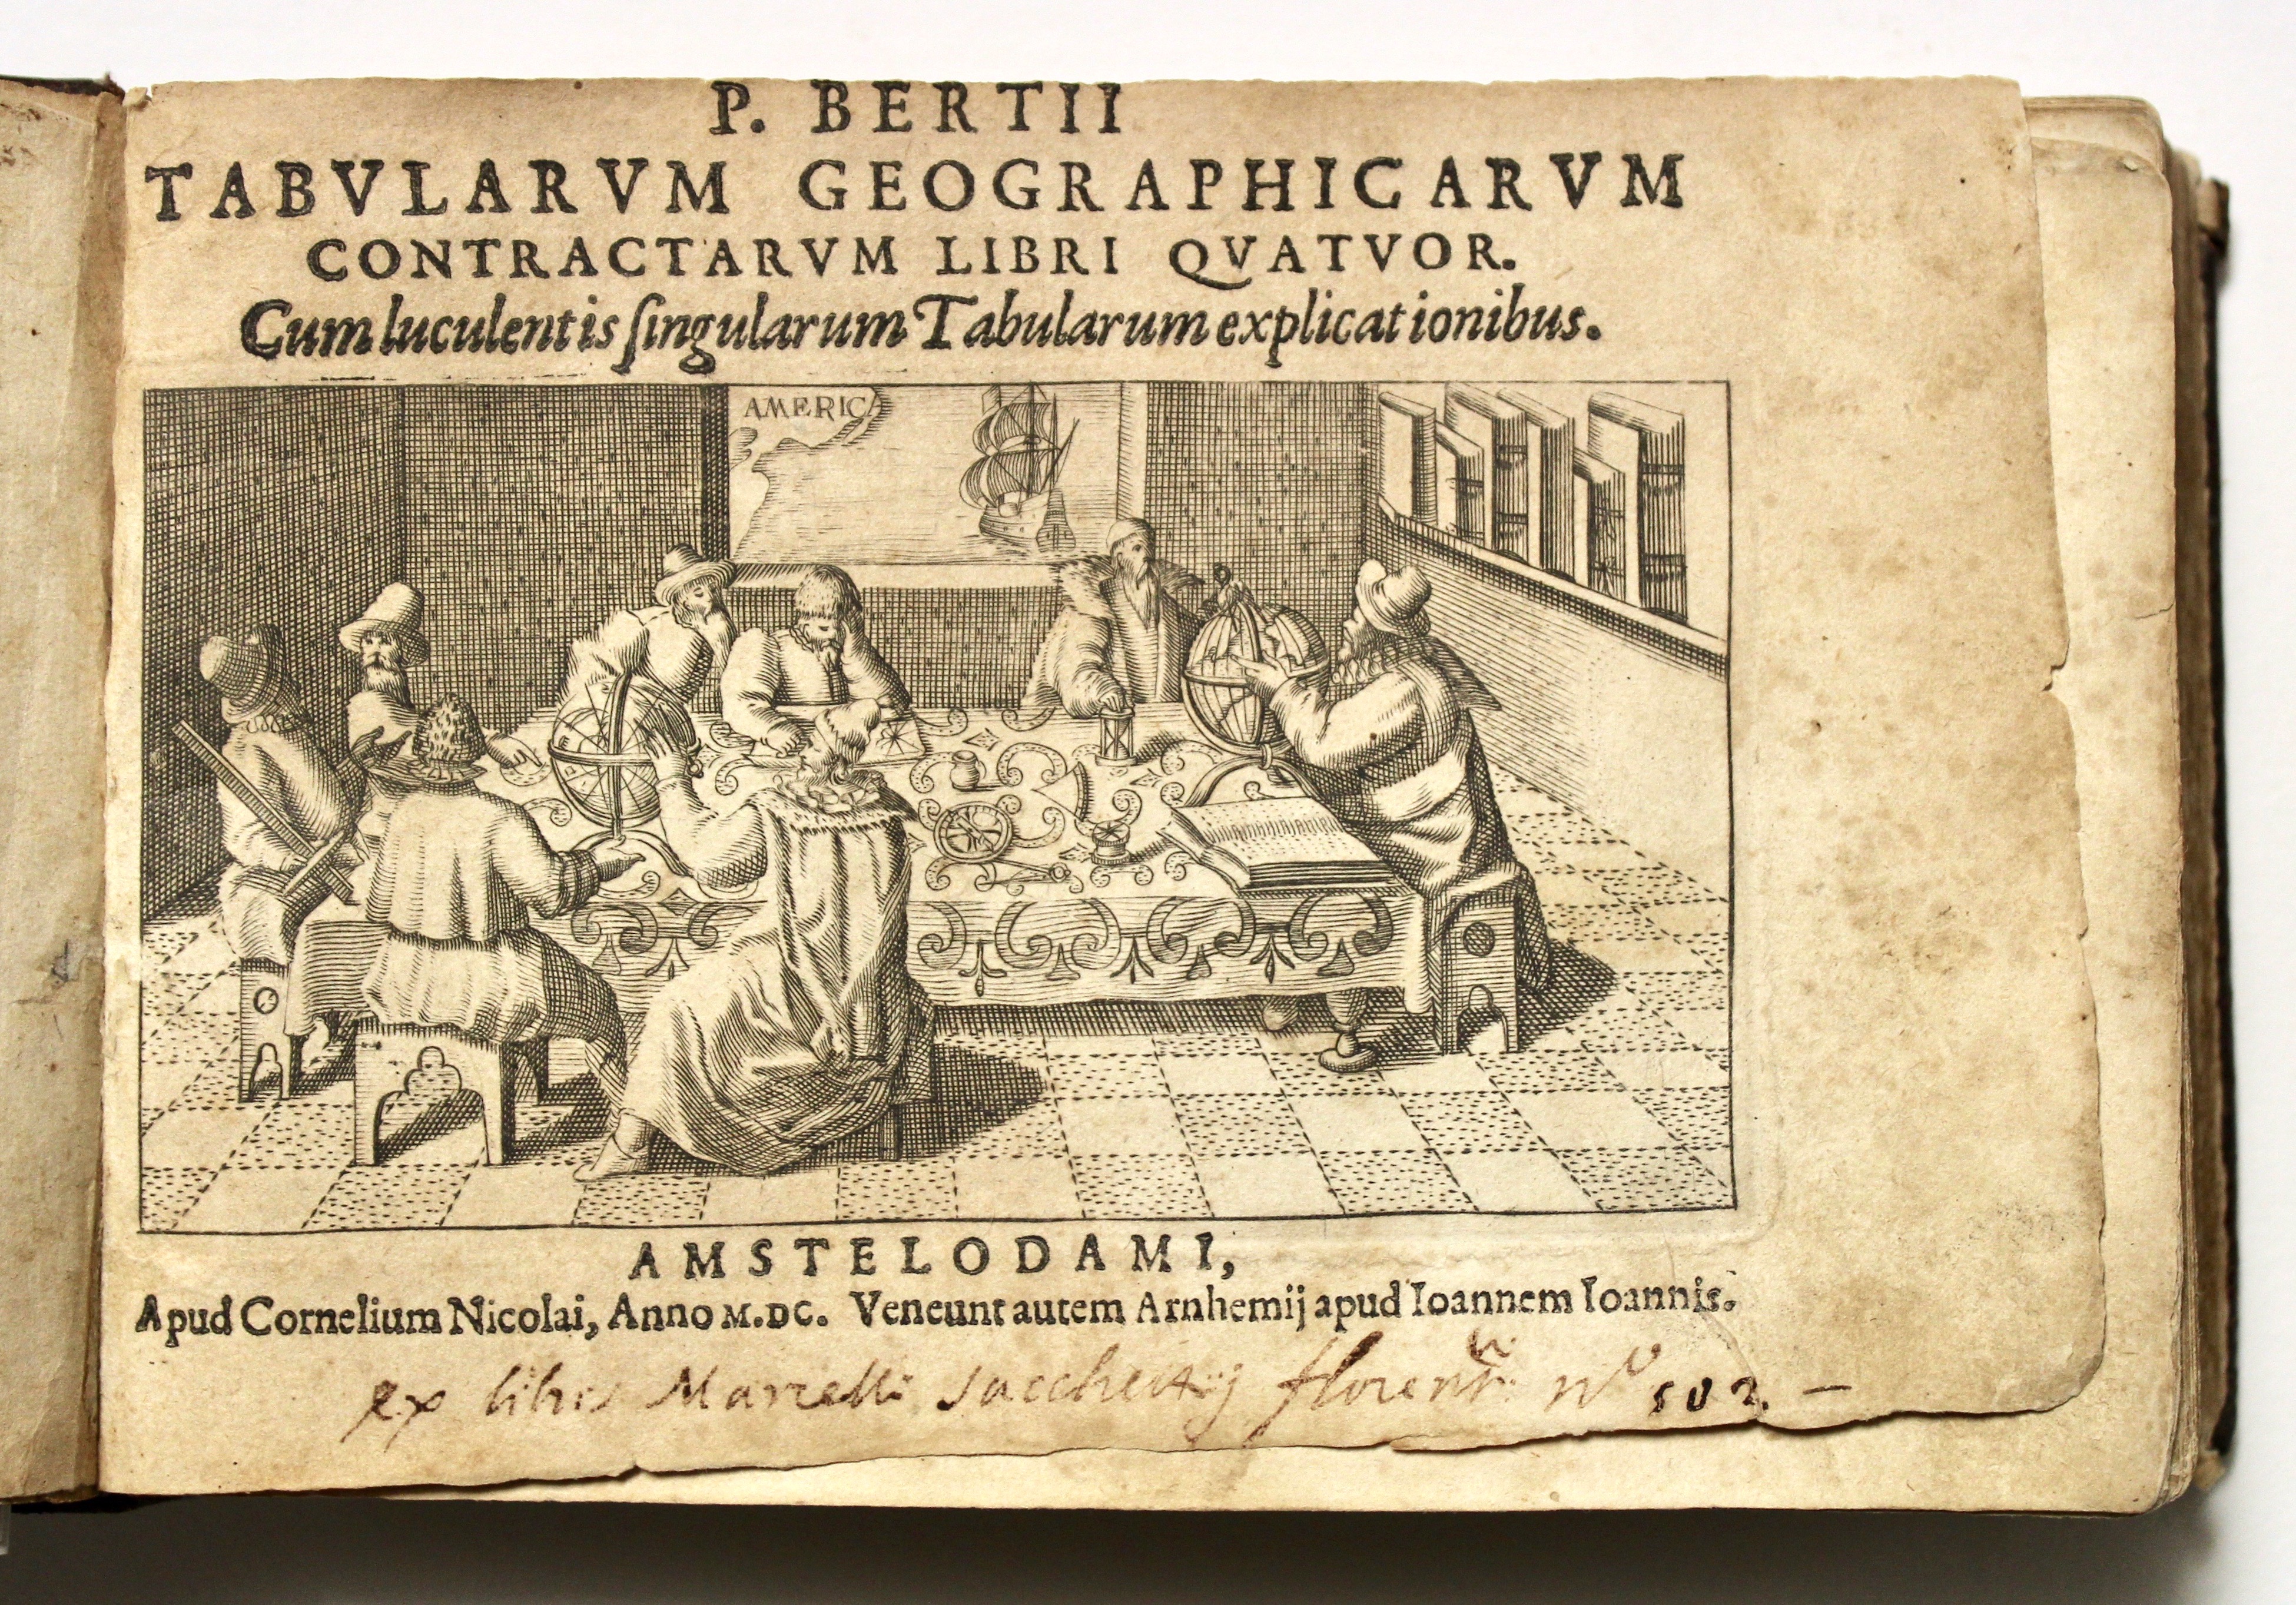 P. BERTII
TABVLARVM GEOGRAPHICARVM
CONTRACTARVM LIBRI QVATVOR.
Cum luculentis ſingularum Tabularum explicationibus.
AMERICA
AMSTELODAMI,
Apud Cornelium Nicolai, Anno M.DC. Veneunt autem Arnhemij apud Ioannem Ioannis.
ex libris Marcelli Sacchettij florent. no 502. —